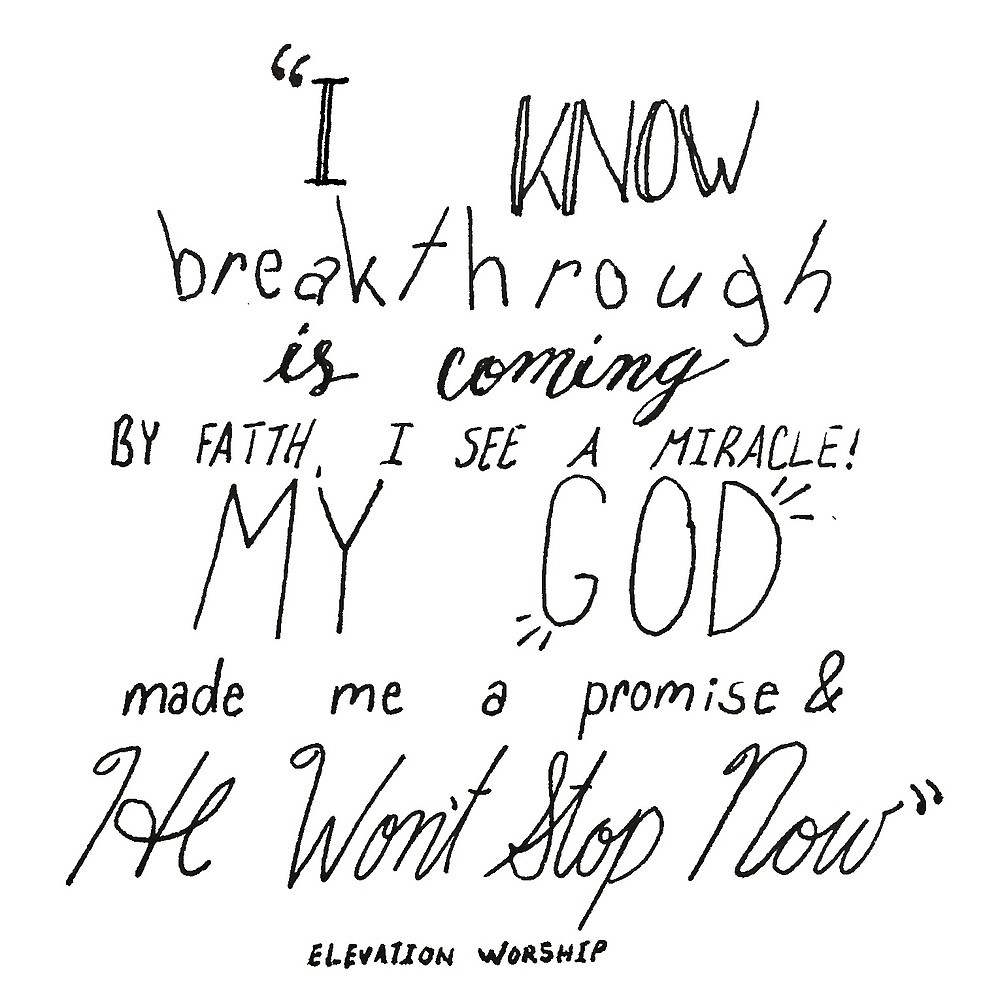 “I KNOW
breakthrough
is coming
BY FAITH, I SEE A MIRACLE!
MY GOD
made me a promise &
He Won't Stop Now”
ELEVATION WORSHIP